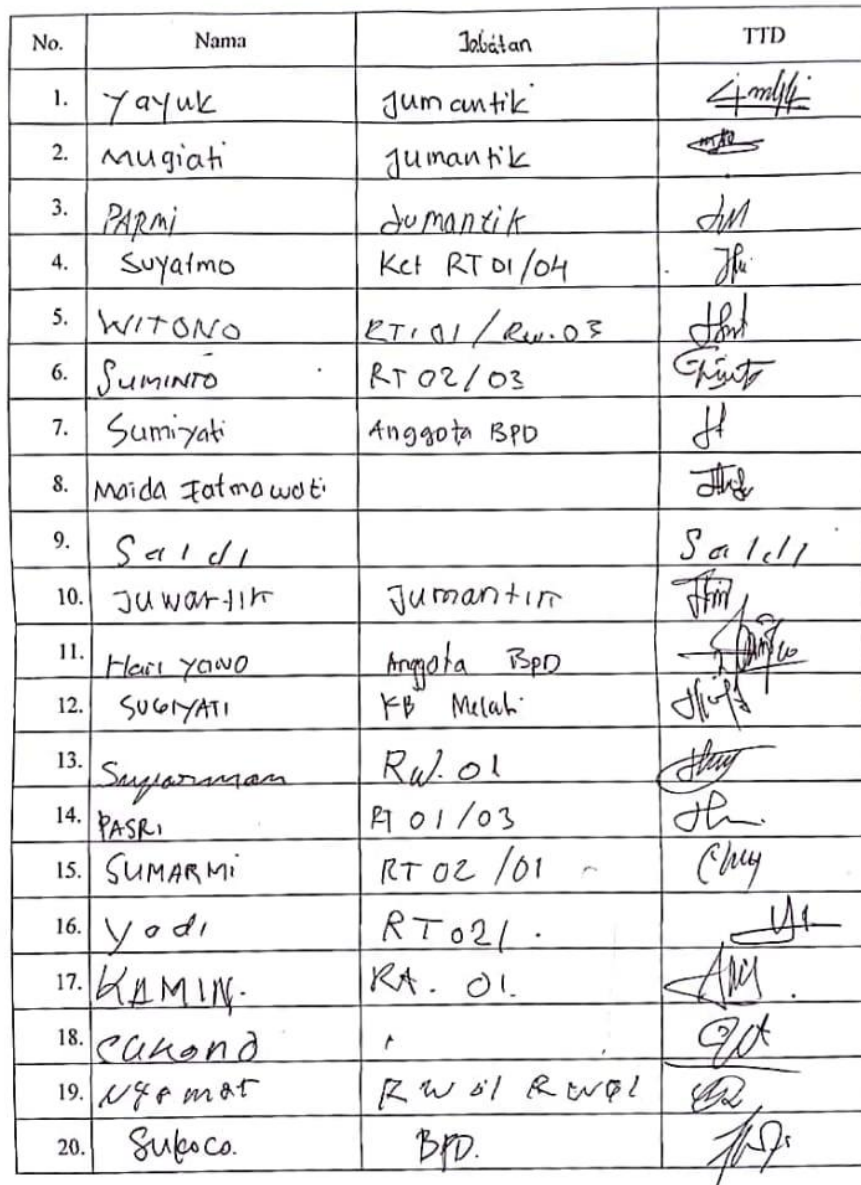 No. Nama Jabatan TTD
1. Yayuk Jumantik
2. Mugiati Jumantik
3. PARMi Jumantik
4. Suyatmo Ket RT 01/04
5. WITONO RT. 01 / Rw. 03
6. SUMINTO RT 02/03
7. Sumiyati Anggota BPD
8. Maida Fatmawati
9. Saldi Saldi
10. Juwartik Jumantik
11. Hari yono Anggota BpD
12. SUGIYATI KB Melati
13. Suparman RW. 01
14. PASRI RT 01/03
15. SUMARMi RT 02 /01
16. Yadi RT 02/.
17. KAMIN. 01.
18.
19. RW
20. Sukoco. BPD.